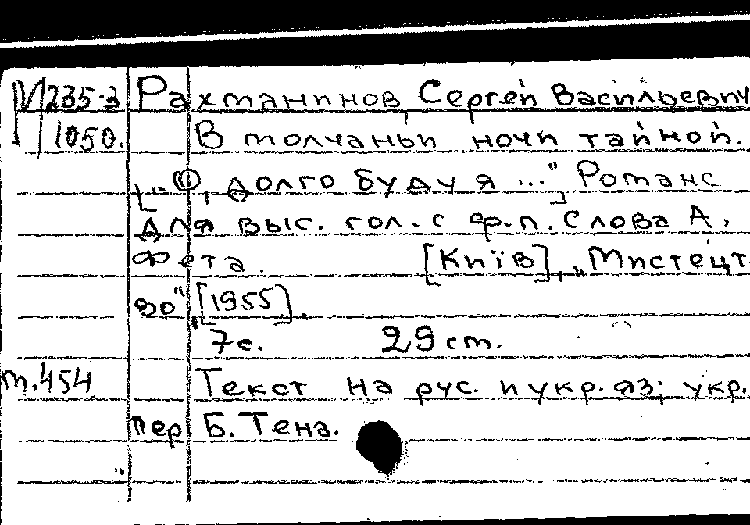 И235-3 Рахманинов, Сергей Васильевич
1050. В молчаньи ночи тайной.
["О, долго буду я ..."] Романс
для выс. гол. с ф.п. Слова А.
Фета. [Київ], "Мистецт
во", [1955].
7 с. 29 cm.
т.454 Текст на рус. и укр. яз; укр.
пер Б. Тена.